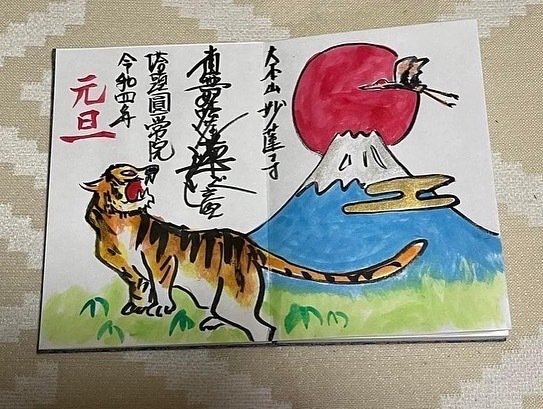 大本山 妙蓮寺
南無妙法蓮華経
塔頭圓常院
令和四年
元旦